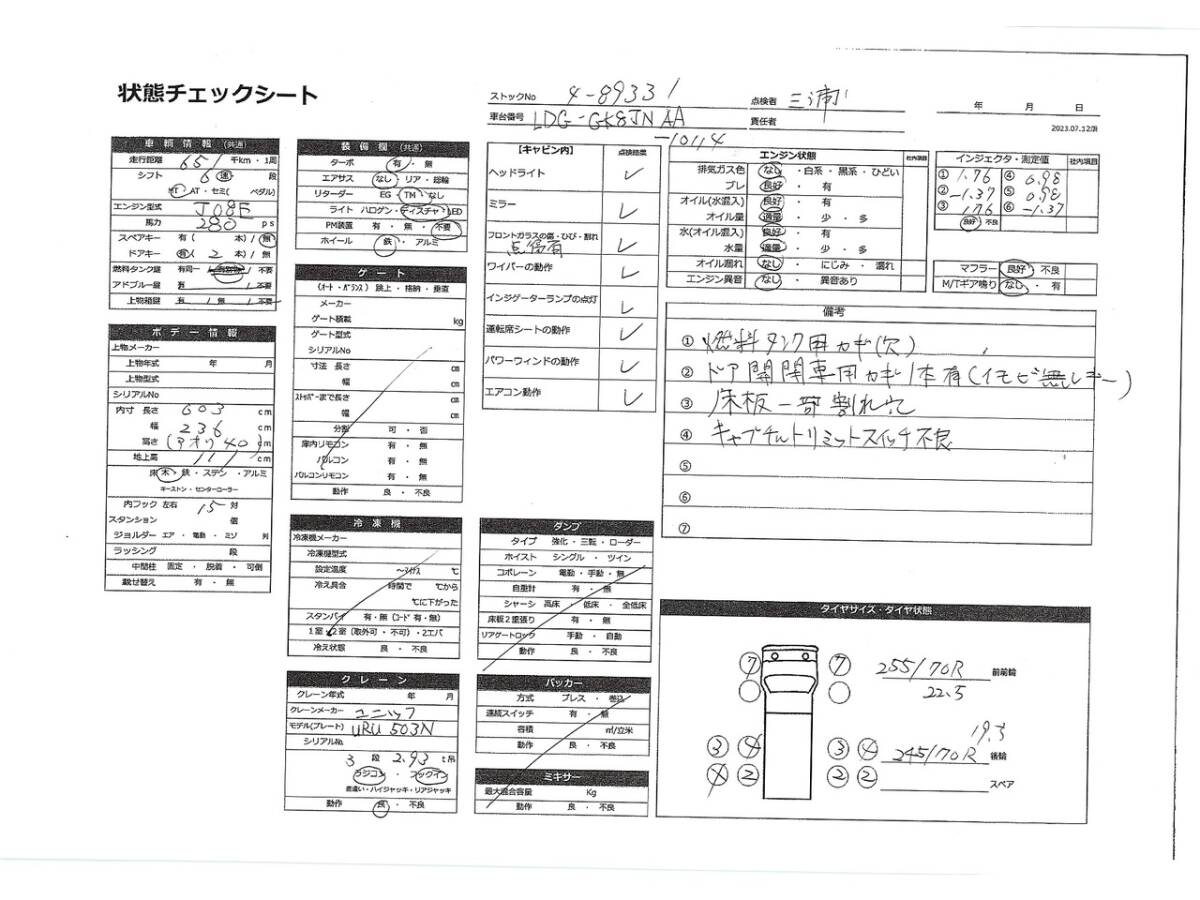 状態チェックシート
ストックNo 4-89331
点検者 三浦
年 月 日
車台番号 LDG-GK8JNAA
-10114
責任者
2023.07.12版
車輌情報 (共通)
走行距離 651 千km・1周
シフト 6 速 段
MT・AT・セミ( ペダル)
エンジン型式 J08E
馬力 280 ps
スペアキー 有( 本)/ 無
ドアキー 有( 2 本)/ 無
燃料タンク鍵 有同一 / 不要
アドブルー鍵 有 / 不要
上物箱鍵 有 / 無 / 不要
ボデー情報
上物メーカー
上物年式 年 月
上物型式
シリアルNo
内寸 長さ 603 cm
幅 236 cm
高さ (アオリ40) cm
地上高 111 cm
床 木・鉄・ステン・アルミ
キーストン・センターローラー
内フック 左右 15 対
スタンション 個
ジョルダー エア・電動・ミゾ 列
ラッシング 段
中間柱 固定・脱着・可倒
載せ替え 有・無
装備欄 (共通)
ターボ 有・無
エアサス なし・リア・総輪
リターダー EG・TM・なし
ライト ハロゲン・ディスチャ・LED
PM装置 有・無・不要
ホイール 鉄・アルミ
ゲート
(オート・バランス) 跳上・格納・垂直
メーカー
ゲート積載 kg
ゲート型式
シリアルNo
寸法 長さ cm
幅 cm
ストッパーまで長さ cm
幅 cm
分割 可・否
庫内リモコン 有・無
バルコン 有・無
バルコンリモコン 有・無
動作 良・不良
冷凍機
冷凍機メーカー
冷凍機型式
設定温度 ～マイナス ℃
冷え具合 時間で ℃から
℃に下がった
スタンバイ 有・無 (コード 有・無)
1室・2室 (取外可・不可)・2エバ
冷え状態 良・不良
クレーン
クレーン年式 年 月
クレーンメーカー ユニック
モデル(プレート) URU 503N
シリアルNo.
3 段 2.93 t吊
ラジコン・フックイン
差違い・ハイジャッキ・リアジャッキ
動作 良・不良
【キャビン内】 点検結果
ヘッドライト ✓
ミラー ✓
フロントガラスの傷・ひび・割れ ✓
点傷有
ワイパーの動作 ✓
インジゲーターランプの点灯 ✓
運転席シートの動作 ✓
パワーウィンドの動作 ✓
エアコン動作 ✓
ダンプ
タイプ 強化・三転・ローダー
ホイスト シングル・ツイン
コボレーン 電動・手動・無
自重計 有・無
シャーシ 高床・低床・全低床
床板2重張り 有・無
リアゲートロック 手動・自動
動作 良・不良
パッカー
方式 プレス・巻込
連続スイッチ 有・無
容積 ㎥/立米
動作 良・不良
ミキサー
最大混合容量 Kg
動作 良・不良
エンジン状態 社内項目
排気ガス色 なし・白系・黒系・ひどい
ブレ 良好・有
オイル(水混入) 良好・有
オイル量 適量・少・多
水(オイル混入) 良好・有
水量 適量・少・多
オイル漏れ なし・にじみ・漏れ
エンジン異音 なし・異音あり
インジェクタ・測定値 社内項目
① 1.76 ④ 0.98
② -1.37 ⑤ 0.98
③ 1.76 ⑥ -1.37
良好 不良
マフラー 良好・不良
M/Tギア鳴り なし・有
備考
① 燃料タンク用カギ(穴)
② ドア開閉車用カギ1本有(イモビ無しキー)
③ 床板一部割れ穴
④ キャブチルトリミットスイッチ不良
⑤
⑥
⑦
タイヤサイズ・タイヤ状態
⑦ ⑦ 255/70R 前前輪
22.5
19.5
③ ④ ③ ④ 245/70R 後輪
② ② ② スペア